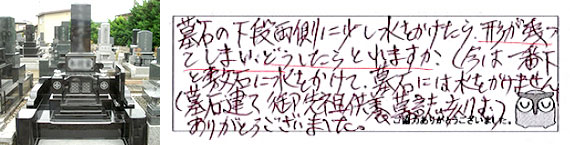 墓石の下段両側に少し水をかけたら、形が残っ
てしまい、どうしたらと出ますか、(今は一番下
と敷石に水をかけて、墓石には水をかけません
(墓石建て、御先祖供養、
ありがとうございました。
ご協力ありがとうございました。